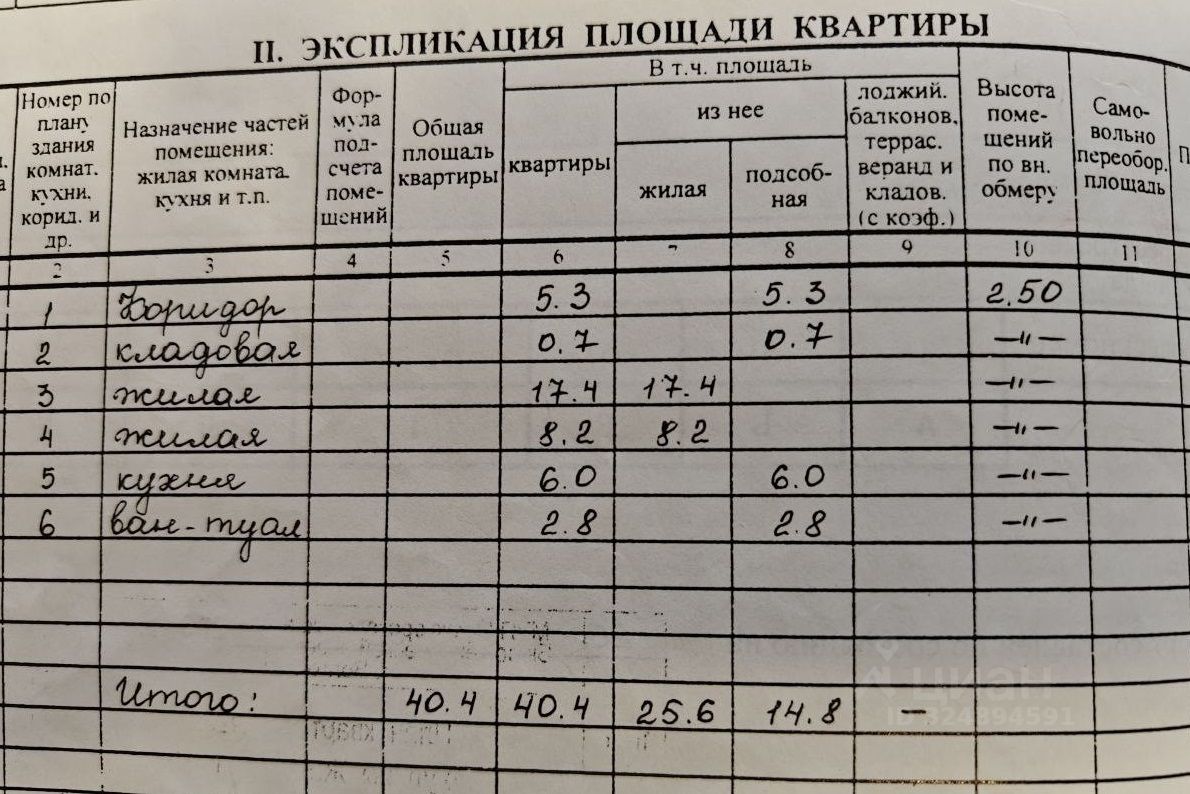 II. ЭКСПЛИКАЦИЯ ПЛОЩАДИ КВАРТИРЫ
Номер по плану здания комнат. кухни. корид. и др.
Назначение частей помещения: жилая комната. кухня и т.п.
Фор-мула под-счета поме-щений
Общая площадь квартиры
В т.ч. площадь
квартиры
из нее
жилая
подсоб-ная
лоджий. балконов. террас. веранд и кладов. (с коэф.)
Высота поме-щений по вн. обмеру
Само-вольно переобор. площадь
2 3 4 5 6 7 8 9 10 11
1 Коридор 5.3 5.3 2.50
2 кладовая 0.7 0.7 —"—
3 жилая 17.4 17.4 —"—
4 жилая 8.2 8.2 —"—
5 кухня 6.0 6.0 —"—
6 ван-туал 2.8 2.8 —"—
Итого: 40.4 40.4 25.6 14.8 —
циан
ID 324394591